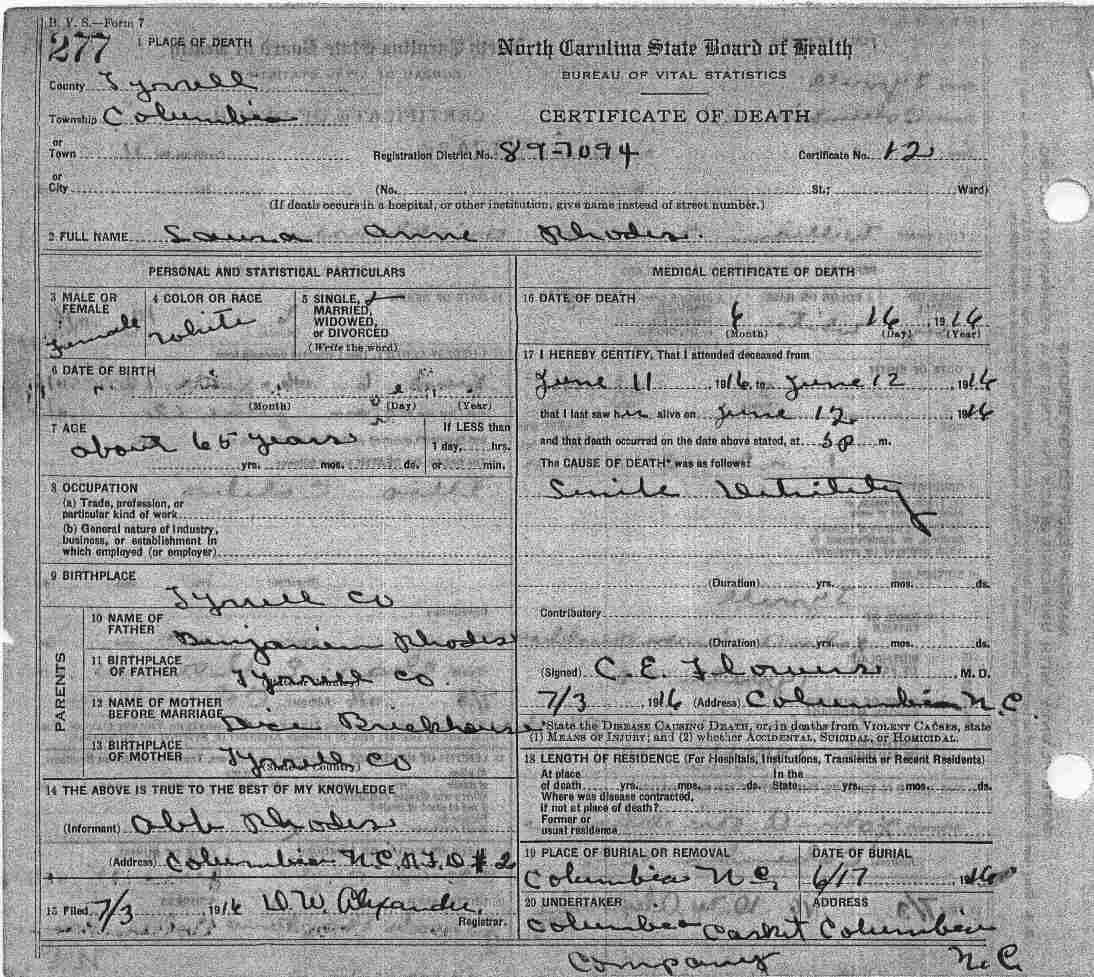 B. V. S.—Form 7
277
1 PLACE OF DEATH
North Carolina State Board of Health
BUREAU OF VITAL STATISTICS
CERTIFICATE OF DEATH
County Tyrrell
Township Columbia
or
Town
Registration District No. 89-7094
Certificate No. 12
or
City (No. St.; Ward)
(If death occurs in a hospital, or other institution, give name instead of street number.)
2 FULL NAME Laura Anne Rhodes.
PERSONAL AND STATISTICAL PARTICULARS
3 MALE OR FEMALE
Female
4 COLOR OR RACE
White
5 SINGLE,
MARRIED,
WIDOWED,
or DIVORCED
(Write the word)
6 DATE OF BIRTH
(Month) (Day) (Year)
7 AGE
about 65 years
yrs. mos. ds.
If LESS than
1 day, hrs.
or min.
8 OCCUPATION
(a) Trade, profession, or
particular kind of work
(b) General nature of Industry,
business, or establishment in
which employed (or employer)
9 BIRTHPLACE
Tyrrell Co
PARENTS
10 NAME OF
FATHER
Benjamin Rhodes
11 BIRTHPLACE
OF FATHER
Tyrrell Co.
12 NAME OF MOTHER
BEFORE MARRIAGE
Dice Brickhouse
13 BIRTHPLACE
OF MOTHER
Tyrrell Co
14 THE ABOVE IS TRUE TO THE BEST OF MY KNOWLEDGE
(Informant) Abb Rhodes
(Address) Columbia N.C. R.F.D #2
15 Filed 7/3 1916 D.W. Alexander,
Registrar.
MEDICAL CERTIFICATE OF DEATH
16 DATE OF DEATH
6 16, 1916
(Month) (Day) (Year)
17 I HEREBY CERTIFY, That I attended deceased from
June 11 1916, to June 12 1916
that I last saw her alive on June 12 1916
and that death occurred on the date above stated, at 3 P m.
The CAUSE OF DEATH* was as follows:
Senile Debility
(Duration) yrs. mos. ds.
Contributory
(Duration) yrs. mos. ds.
(Signed) C. E. Flowers, M. D.
7/3 1916 (Address) Columbia N.C
*State the DISEASE CAUSING DEATH, or, in deaths from VIOLENT CAUSES, state
(1) MEANS OF INJURY; and (2) whether ACCIDENTAL, SUICIDAL, or HOMICIDAL.
18 LENGTH OF RESIDENCE (For Hospitals, Institutions, Transients or Recent Residents)
At place In the
of death yrs. mos. ds. State yrs. mos. ds.
Where was disease contracted,
if not at place of death?
Former or
usual residence
19 PLACE OF BURIAL OR REMOVAL
Columbia N.C,
DATE OF BURIAL
6/17 1916
20 UNDERTAKER
Columbia Casket
Company
ADDRESS
Columbia
N.C.